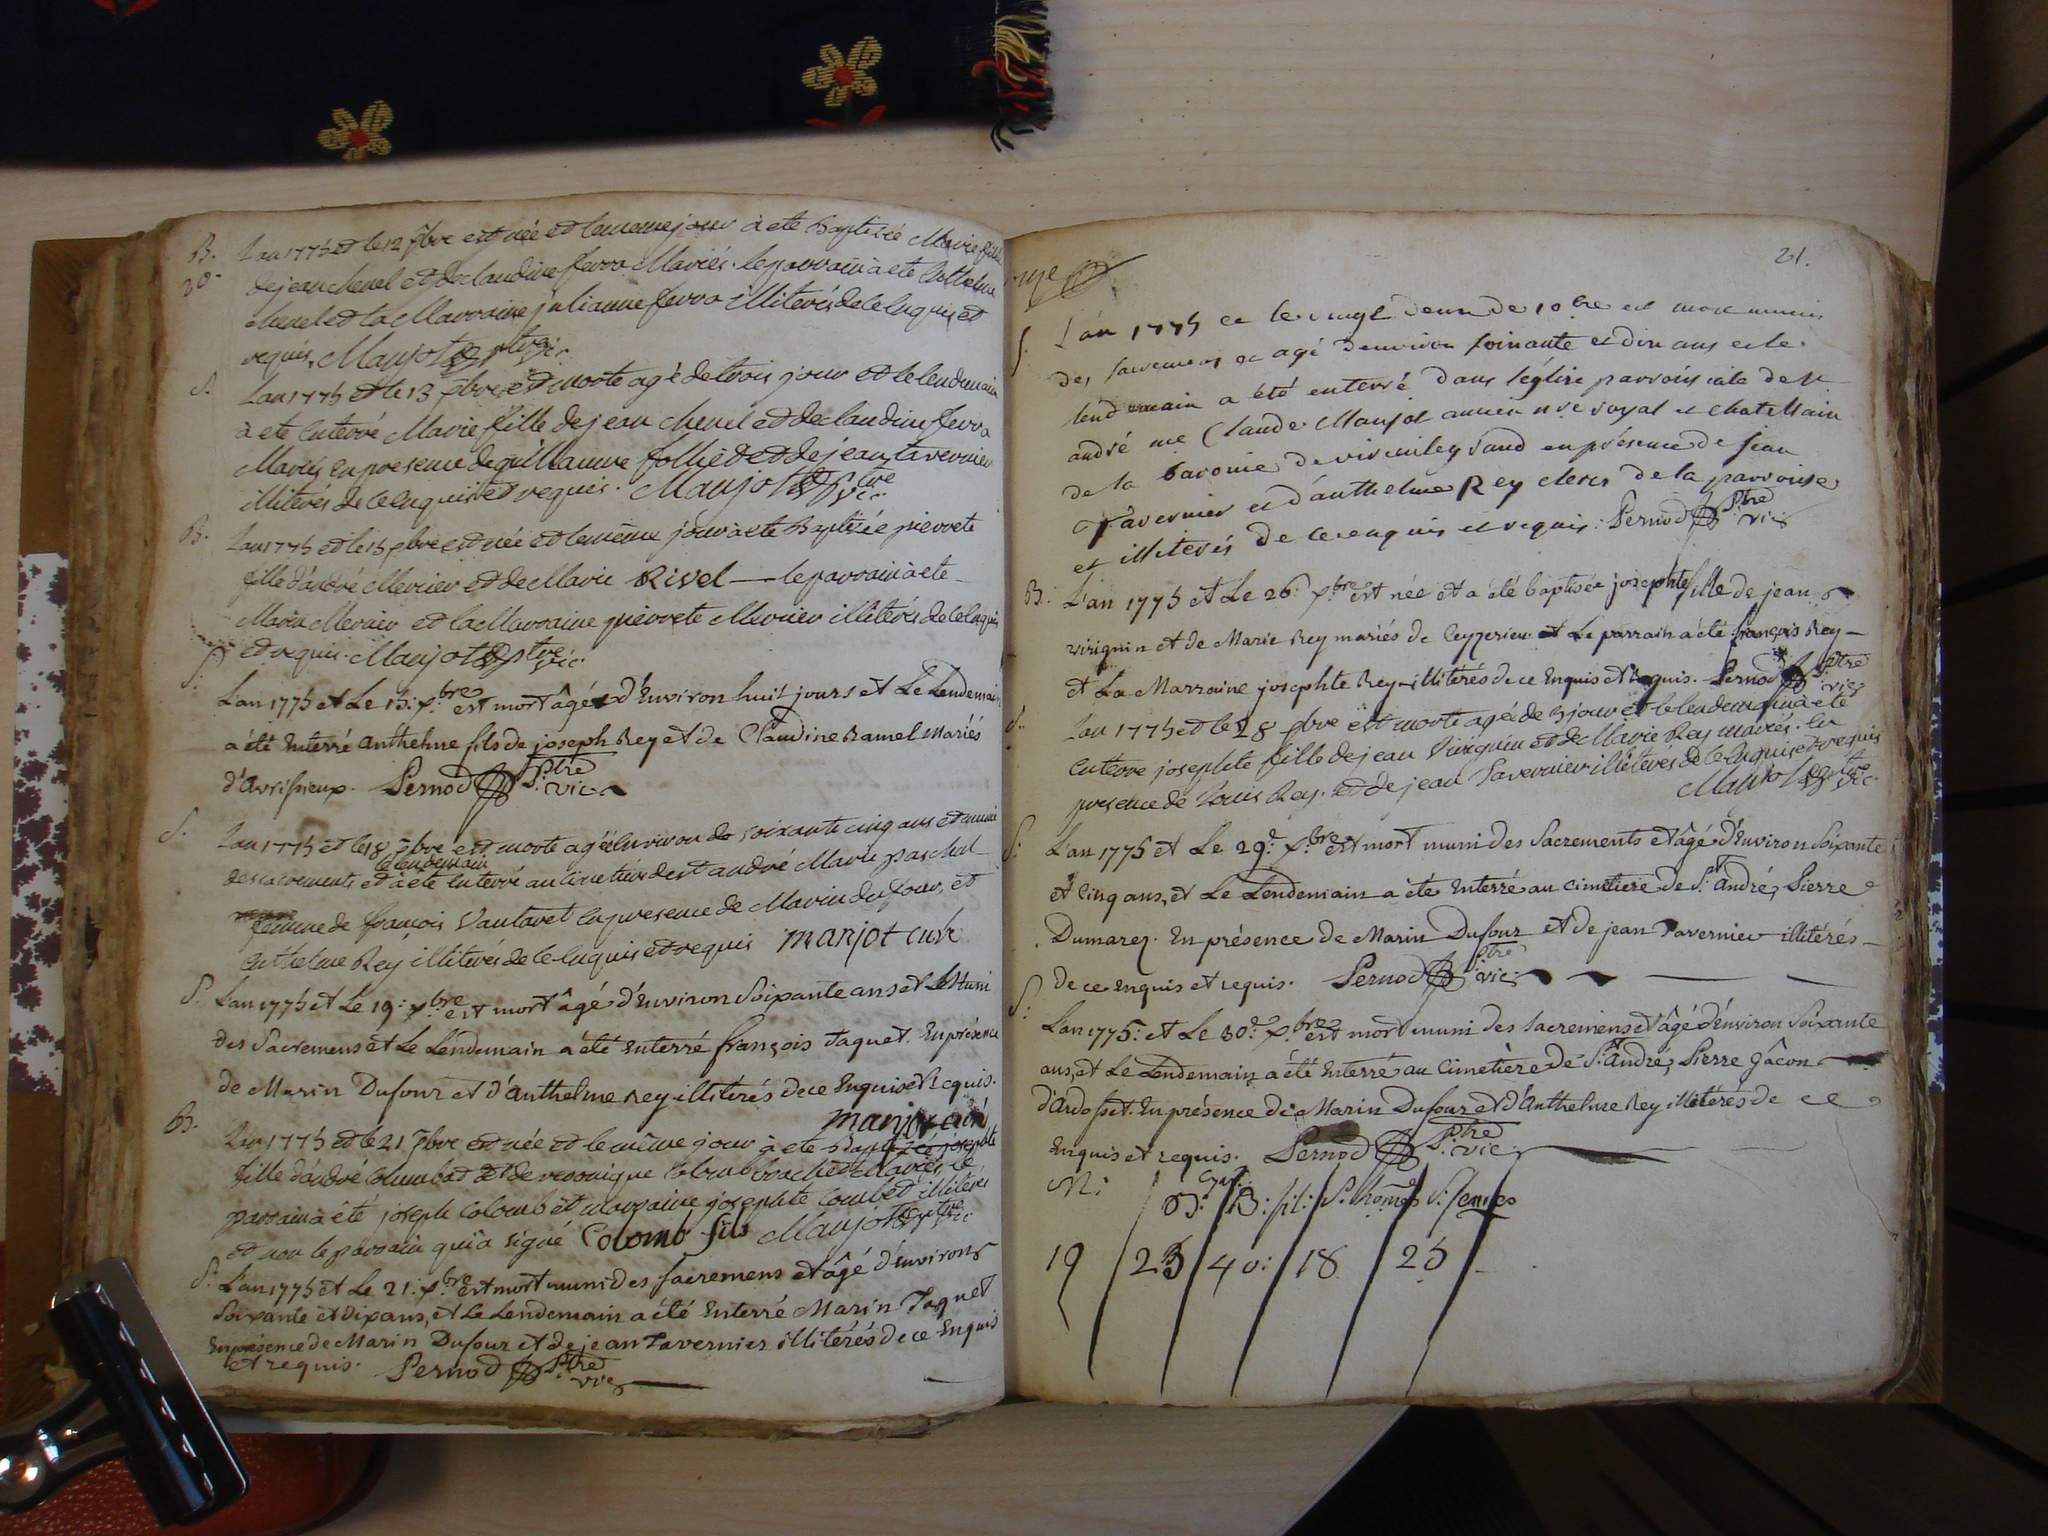 B. L'an 1775 et le 12 xbre est née et le meme jour à eté Baptisée Marie fille
20. de jean chenel et de claudine ferro Mariés. le parrain à eté Anthelme
chenel et la Marraine julianne ferro illiterés de ce Enquis et
requis. Manjot ptre vic.
S. L'an 1775 et le 13 xbre est morte agé de trois jour et le lendemain
à eté Enterré Marie fille de jean chenel et de claudine ferro
Mariés En presence de guillaume folliet et de jean tavernier
illiterés de ce Enquis et requis. Manjot ptre vic.
B. L'an 1775 et le 15 xbre est née et le même jour à eté Baptisée pierrete
fille d'andré Mernier et de Marie Rivel — le parrain à eté
Marin Mernier et la Marraine pierrete Mernier illiterés de ce Enquis
et requis. Manjot ptre vic.
S. L'an 1775 et Le 15: x.bre est mort âgé d'Environ huit jours et Le Lendemain
a été Enterré anthelme fils de joseph Rey et de Claudine Ramel Mariés
d'Avrissieux. Pernod P.tre vic.
S. L'an 1775 et le 18 xbre est morte agée Environ de soixante cinq ans et munie
le lendemain
des sacrements et à eté Enterré au cimetière de st andré Marie paschal
femme de françois Vautaret En presence de Marin dufour, et
Anthelme Rey illiterés de ce Enquis et requis manjot curé
S. L'an 1775 et Le 19: x.bre est mort âgé d'Environ Soixante ans et Muni
des Sacremens et Le Lendemain a été Enterré françois Jaquet. En présence
de Marin Dufour et d'Anthelme Rey illitérés de ce Enquis et Requis.
manjot curé
B. L'an 1775 et le 21 xbre est née et le même jour à eté Baptisée josephte
fille d'andré Columbet et de veronique Mariés, le
parrain à été joseph colomb et marraine josephte Combet illiterés
et non le parrain qui a signé Colomb fils Manjot ptre vic
S. L'an 1775 et Le 21: x.bre est mort muni des sacremens et âgé d'Environ
Soixante et dix ans, et Le Lendemain a été Enterré Marin Jaquet
En présence de Marin Dufour et de jean Tavernier illitérés de ce Enquis
et requis. Pernod P.tre vic
21.
S. L'an 1775 et le vingt deux de 10bre est mort munis
des sacremens et agé d'environ soixante et dix ans et le
lendemain a été enterré dans l'église parroissiale de st
andré me Claude Manjot ancien nre royal et chatellain
de la baronie de en présence de jean
Tavernier et d'anthelme Rey clercs de la parroisse
et illiterés de ce enquis et requis: Pernod Ptre vic
B. L'an 1775 et Le 26: x.bre est née et a été baptisée josephte fille de jean
viriguin et de Marie Rey mariés de Ceyzerieu et Le parrain a été françois Rey —
et La Marraine josephte Rey illitérés de ce Enquis et Requis. Pernod Ptre vic
S. L'an 1775 et le 28 xbre est morte agée de 3 jour et le lendemain à eté
Enterré josephte fille de jean Viriguin et de Marie Rey mariés. En
presence de Louis Rey. et de jean Tavernier illiterés de ce Enquis et requis
Manjot ptre vic.
S. L'an 1775 et Le 29: x.bre est mort muni des Sacrements et âgé d'Environ Soixante
et Cinq ans, et Le Lendemain a été Enterré au cimetière de S.t André, Pierre
Dumarez. En présence de Marin Dufour et de jean Tavernier illitérés —
de ce Enquis et requis. Pernod Ptre vic.
S. L'an 1775: et Le 30: x.bre est mort muni des sacremens et âgé d'Environ Soixante
ans, et Le Lendemain a été Enterré au Cimetière de S.t André, Pierre Gâcon
d'Ardosset. En présence de Marin Dufour et d'Anthelme Rey illitérés de ce
Enquis et requis. Pernod P.tre vic.
M: B: B: fil: S. homes S: femes
19 23 40: 18 25